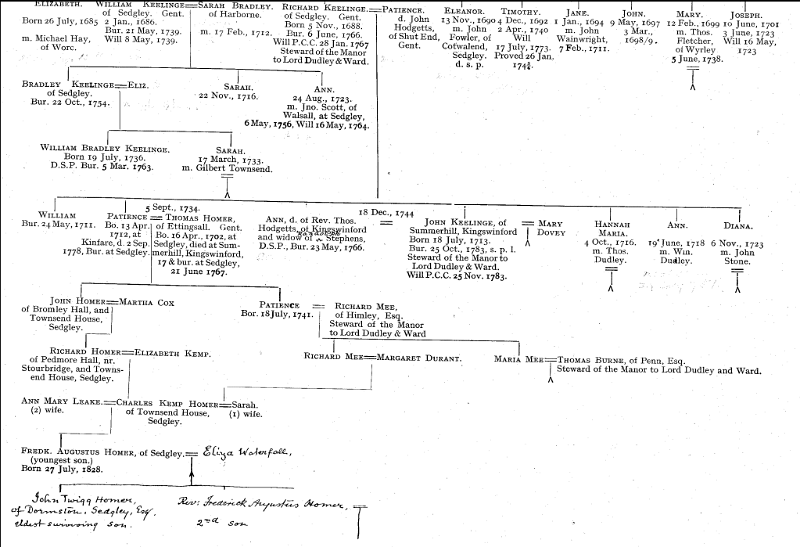 ELIZABETH.
Born 26 July, 1685
m. Michael Hay,
of Worc.
WILLIAM KEELINGE=SARAH BRADLEY.
of Sedgley. Gent. of Harborne.
2 Jan., 1686.
Bur. 21 May, 1739. m. 17 Feb., 1712.
Will 8 May, 1739.
RICHARD KEELINGE.=PATIENCE,
of Sedgley. Gent. d. John
Born 5 Nov., 1688. Hodgetts,
Bur. 6 June, 1766. of Shut End,
Will P.C.C. 28 Jan. 1767 Gent.
Steward of the Manor
to Lord Dudley & Ward.
ELEANOR.
13 Nov., 1690
m. John
Fowler, of
Cotwalend,
Sedgley.
d. s. p.
TIMOTHY.
4 Dec., 1692
2 Apr., 1740
Will
17 July, 1773.
Proved 26 Jan.
174¾.
JANE.
1 Jan., 1694
m. John
Wainwright,
7 Feb., 1711.
JOHN.
9 May, 1697
3 Mar.,
1698/9.
MARY.
12 Feb., 1699
m. Thos.
Fletcher,
of Wyrley
5 June, 1738.
JOSEPH.
10 June, 1701
3 June, 1723
Will 16 May,
1723
BRADLEY KEELINGE=ELIZ.
of Sedgley.
Bur. 22 Oct., 1754.
SARAH.
22 Nov., 1716.
ANN.
24 Aug., 1723.
m. Jno. Scott, of
Walsall, at Sedgley,
6 May, 1756, Will 16 May, 1764.
WILLIAM BRADLEY KEELINGE.
Born 19 July, 1736.
D.S.P. Bur. 5 Mar. 1763.
SARAH.
17 March, 1733.
m. Gilbert Townsend.
WILLIAM
Bur. 24 May, 1711.
5 Sept., 1734.
PATIENCE = THOMAS HOMER,
Bo. 13 Apr. of Ettingsall. Gent.
1712, at Bo. 16 Apr., 1702, at
Kinfare, d. 2 Sep. Sedgley, died at Sum-
1778, Bur. at Sedgley. merhill, Kingswinford,
17 & bur. at Sedgley,
21 June 1767.
18 Dec., 1744
ANN, d. of Rev. Thos.
Hodgetts, of Kingswinford
and widow of Stephens,
D.S.P., Bur. 23 May, 1766.
= JOHN KEELINGE, of = MARY
Summerhill, Kingswinford DOVEY
Born 18 July, 1713.
Bur. 25 Oct., 1783. s. p. l.
Steward of the Manor to
Lord Dudley & Ward.
Will P.C.C. 25 Nov. 1783.
HANNAH
MARIA.
4 Oct., 1716.
m. Thos.
Dudley.
ANN.
19 June, 1718
m. Win.
Dudley.
DIANA.
6 Nov., 1723
m. John
Stone.
JOHN HOMER=MARTHA COX
of Bromley Hall, and
Townsend House,
Sedgley.
PATIENCE = RICHARD MEE,
Bor. 18 July, 1741. of Himley, Esq.
Steward of the Manor
to Lord Dudley & Ward
RICHARD HOMER=ELIZABETH KEMP.
of Pedmore Hall, nr.
Stourbridge, and Towns-
end House, Sedgley.
RICHARD MEE=MARGARET DURANT.
MARIA MEE=THOMAS BURNE, of Penn, Esq.
Steward of the Manor to Lord Dudley and Ward.
ANN MARY LEAKE.=CHARLES KEMP HOMER=Sarah.
(2) wife. of Townsend House, (1) wife.
Sedgley.
FREDK. AUGUSTUS HOMER, of Sedgley.= Eliza Waterfall,
(youngest son.)
Born 27 July, 1828.
John Twigg Homer,
of Dormston, Sedgley, Esq,
eldest surviving son.
Rev: Frederick Augustus Homer, =
2nd son